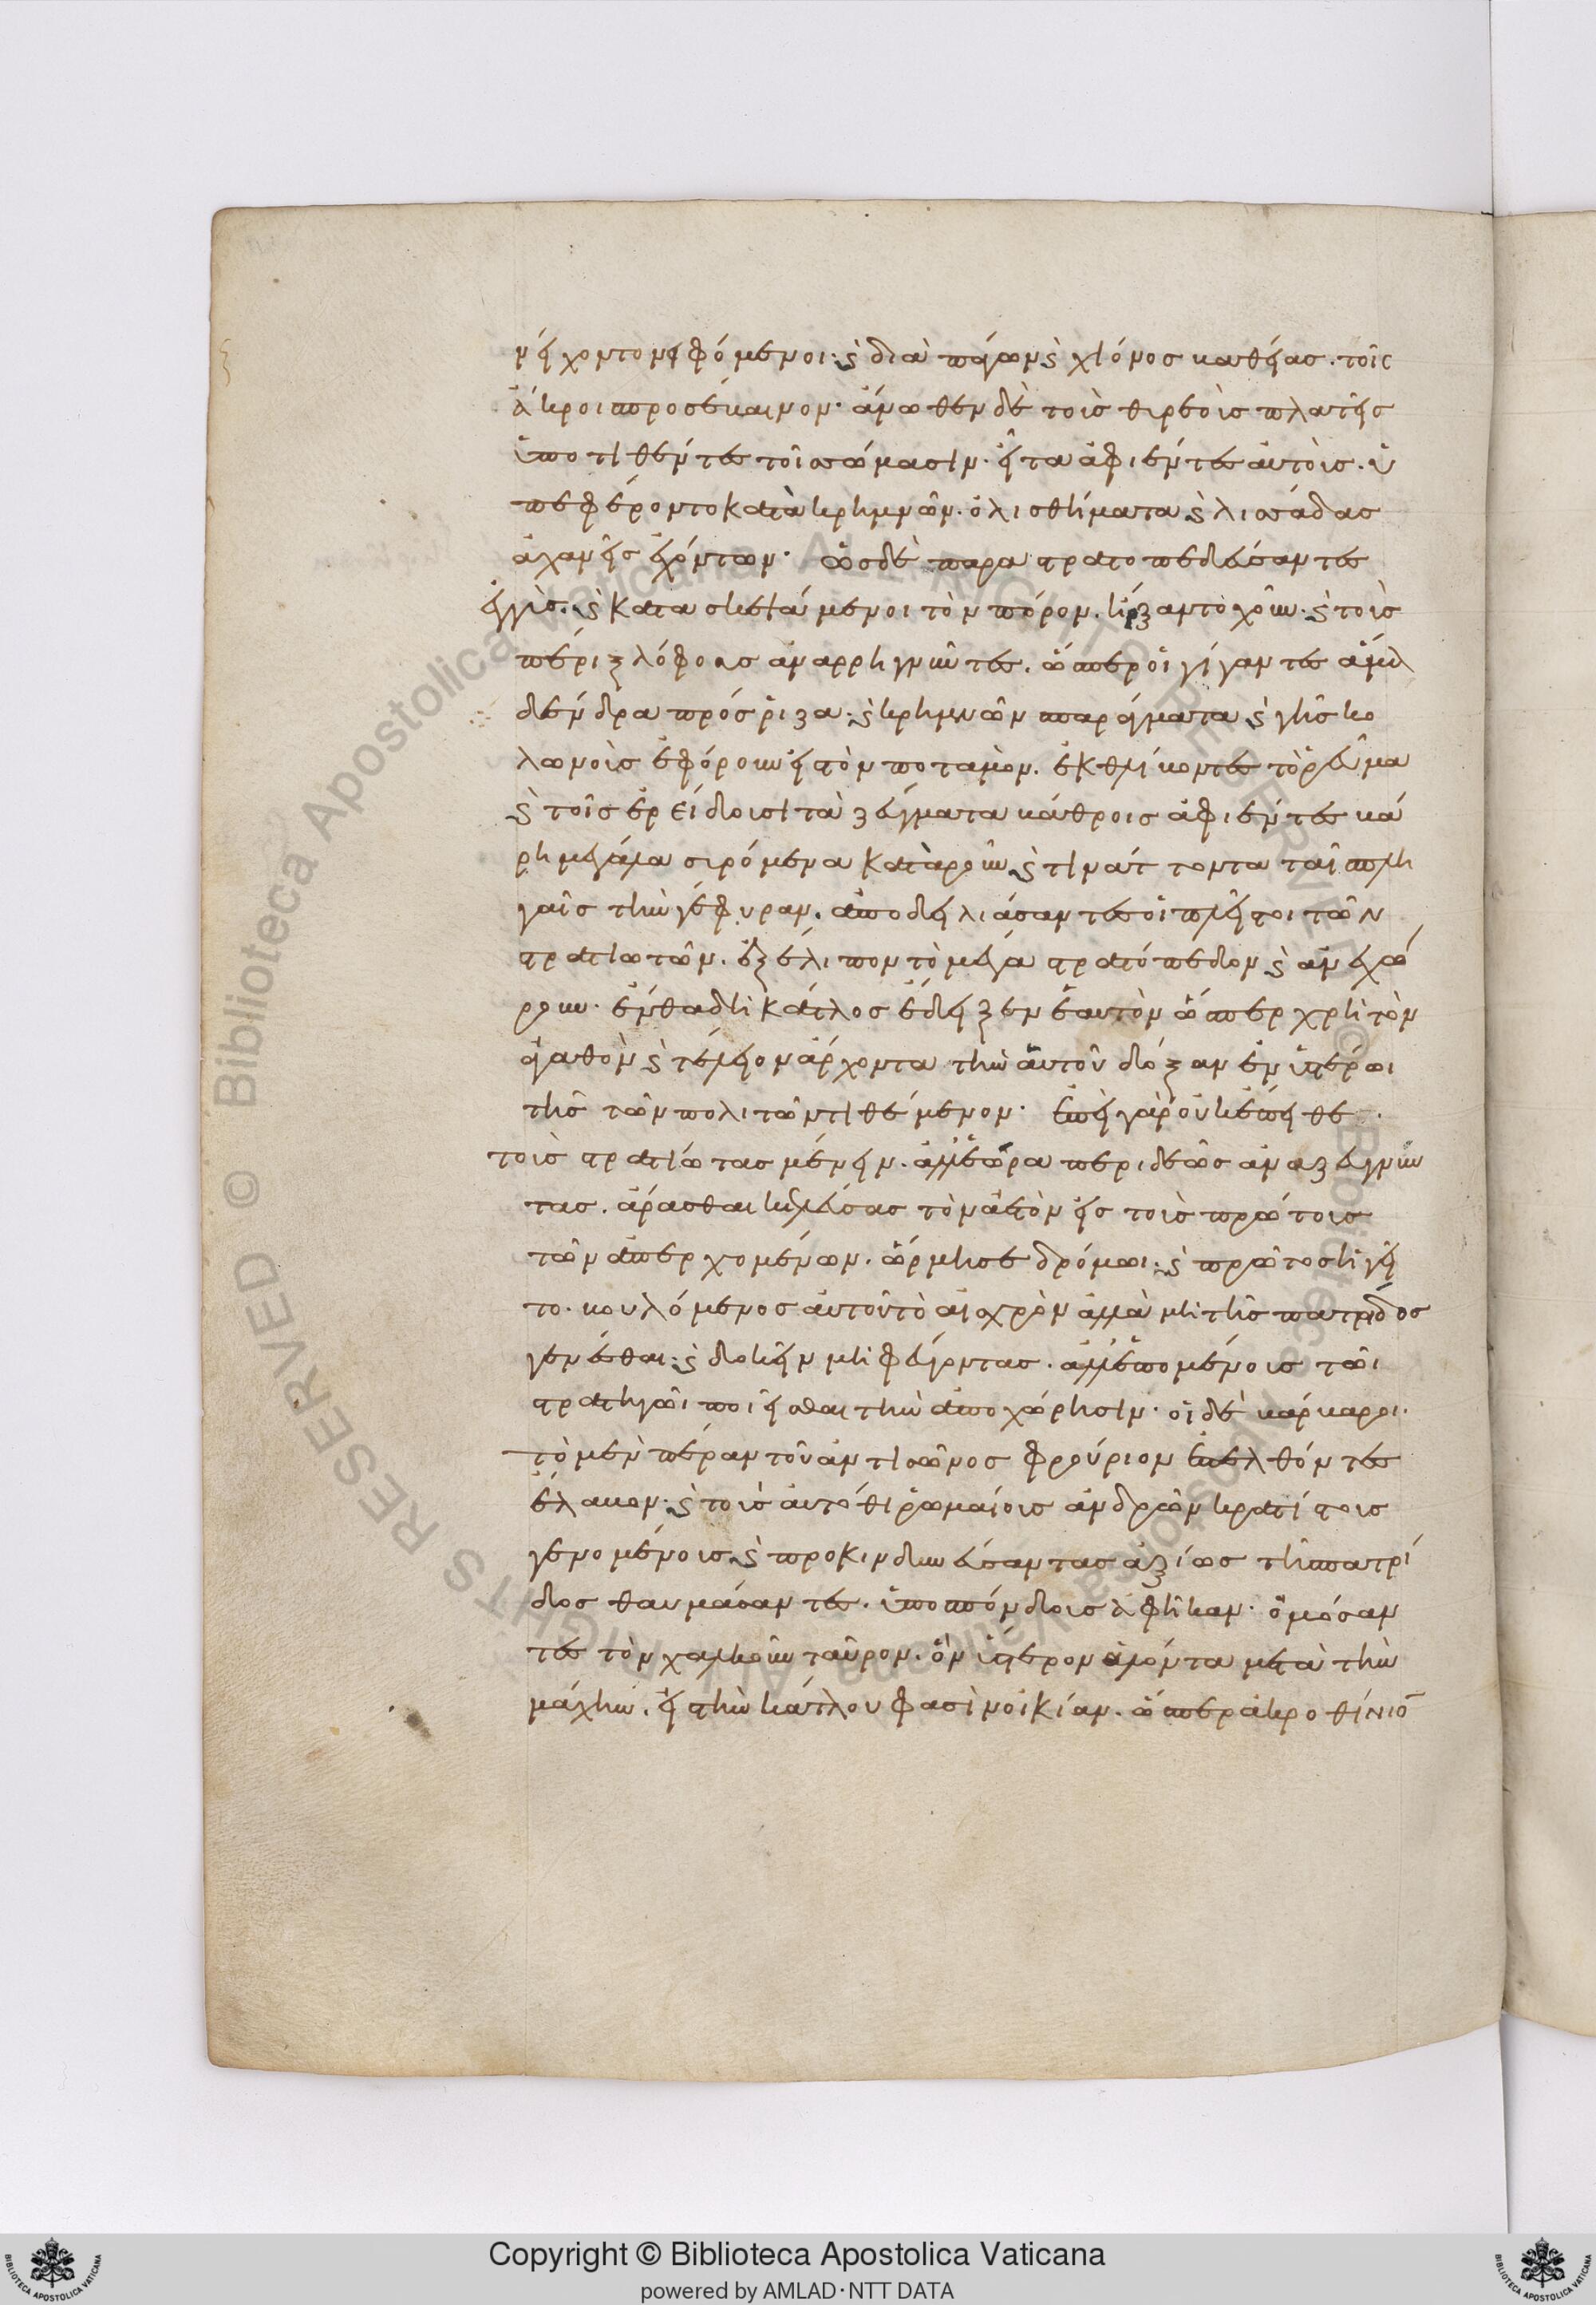 νείχοντο νειφόμενοι· καὶ διὰ πάγων καὶ χιόνος βαθείας. τοῖς
ἄκροις προσέβαινον· ἄνωθεν δὲ τοὺς θυρεοὺς πλατεῖς
ὑποτιθέντες τοῖς σώμασιν. εἶτα ἀφιέντες αὑτοὺς. ὑ
πεφέροντο κατὰ κρημνῶν. ὀλισθήματα καὶ λισσάδας
ἀχανεῖς ἐχόντων· ὡς δὲ παραστρατοπεδεύσαντες
ἐγγὺς. καὶ κατασκεψάμενοι τὸν πόρον. ἤρξαντο χοῦν. καὶ τοὺς
πέριξ λόφους ἀναρρηγνύντες. ὥσπερ οἱ γίγαντες ἅμα
δένδρα πρόσριζα· καὶ κρημνῶν σπαράγματα καὶ γῆς κο
λωνοὺς ἐφόρουν εἰς τὸν ποταμὸν. ἐκθλίβοντες τὸ ῥεῦμα
καὶ τοῖς ἐρείδουσι τὰ ζεύγματα βάθροις ἀφιέντες βά
ρη μεγάλα συρόμενα κατὰ ροῦν καὶ τινάττοντα ταῖς πλη
γαῖς τὴν γέφυραν. ἀποδειλιάσαντες οἱ πλεῖστοι τῶν
στρατιωτῶν. ἐξέλιπον τὸ μέγα στρατόπεδον καὶ ἀνεχώ
ρουν· ἔνθα δὴ κάτλος ἔδειξεν ἑαυτὸν ὥσπερ χρὴ τὸν
ἀγαθὸν καὶ τέλειον ἄρχοντα τὴν αὑτοῦ δόξαν ἐν ὑστέρωι
τῆς τῶν πολιτῶν τιθέμενον· ἐπεὶ γὰρ οὐκ ἔπειθε
τοὺς στρατιώτας μένειν. ἀλλ' ἑώρα περιδεῶς ἀναζευγνύν
τας. ἄρασθαι κελεύσας τὸν ἀετὸν εἰς τοὺς πρώτους
τῶν ἀπερχομένων. ὥρμησε δρόμωι· καὶ πρῶτος ἡγεῖ
το. βουλόμενος αὑτοῦ τὸ αἰσχρὸν ἀλλὰ μὴ τῆς πατρίδος
γενέσθαι· καὶ δοκεῖν μὴ φεύγοντας. ἀλλ' ἑπομένους τῶι
στρατηγῶι ποιεῖσθαι τὴν ἀποχώρησιν· οἱ δὲ βάρβαροι.
τὸ μὲν πέραν τοῦ ἀντισῶνος φρούριον ἐπελθόντες
ἔλαβον· καὶ τοὺς αὐτόθι ῥωμαίους ἀνδρῶν κρατίστους
γενομένους. καὶ προκινδυνεύσαντας ἀξίως τῆς πατρί
δος θαυμάσαντες. ὑποσπόνδους ἀφῆκαν· ὀμόσαν
τες τὸν χαλκοῦν ταῦρον. ὃν ὕστερον ἁλόντα μετὰ τὴν
μάχην. εἰς τὴν κάτλου φασὶν οἰκίαν. ὥσπερ ἀκροθίνιον